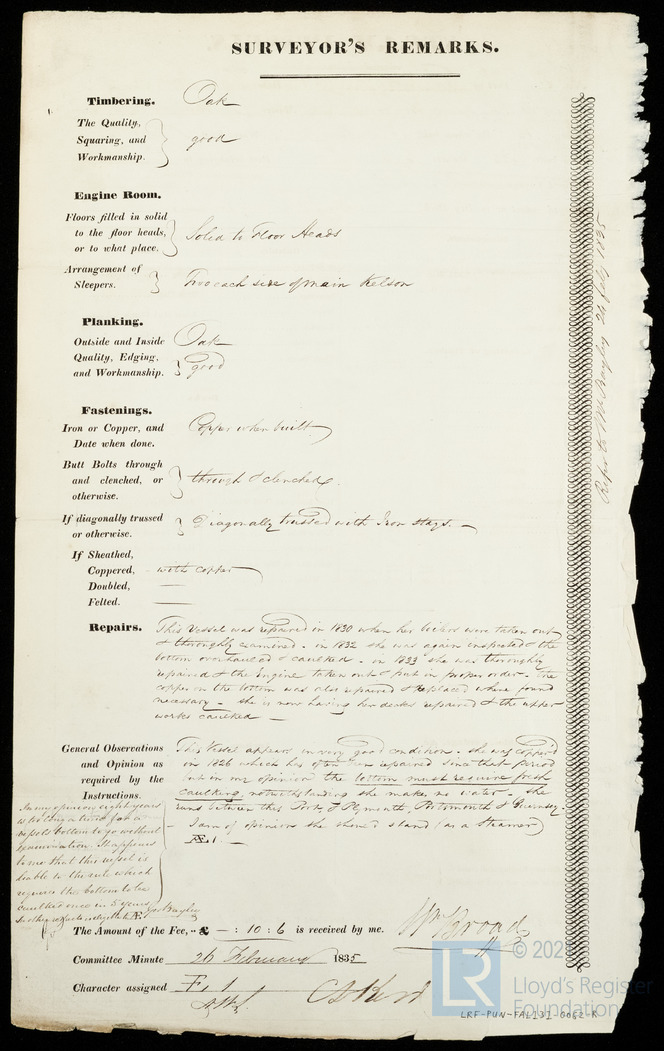 SURVEYOR'S REMARKS.
Timbering. Oak
The Quality,
Squaring, and good
Workmanship.
Engine Room.
Floors filled in solid
to the floor heads, Solid to Floor Heads
or to what place.
Arrangement of
Sleepers. Two each side of main Kelson
Planking.
Outside and Inside Oak
Quality, Edging,
and Workmanship. good
Fastenings.
Iron or Copper, and Copper when built
Date when done.
Butt Bolts through
and clenched, or through & clenched
otherwise.
If diagonally trussed Diagonally trussed with Iron stays. —
or otherwise.
If Sheathed,
Coppered, with copper
Doubled, —
Felted. —
Repairs. This Vessel was repaired in 1830 when her boilers were taken out
& thoroughly examined. in 1832 she was again inspected & the
bottom overhauled & caulked. in 1833 she was thoroughly
repaired & the Engine taken out & put in proper order. The
copper on the bottom was also repaired & replaced where found
necessary. she is now having her decks repaired & the upper
works caulked —
General Observations
and Opinion as
required by the
Instructions.
This Vessel appears in very good condition. she was coppered
in 1826 which has often been repaired since that period
but in my opinion the bottom must require fresh
caulking, notwithstanding she makes no water. she
runs between this Port, & Plymouth, Portsmouth & Guernsey.
— I am of opinion she should stand (as a Steamer)
Æ 1 —
In my opinion eight years
is too long a time for a
vessels bottom to go without
It appears
to me that this vessel is
liable to the rule which
requires the bottom to be
caulked once in 5 years
In other respects eligible to Æ Geo Bayley
The Amount of the Fee, £ — : 10 : 6 is received by me. Wm Broad
Committee Minute 26 February 1835
Character assigned Æ 1
© 202
LR
Lloyd's Register
Foundation
LRF-PUN-FAL131-0062-R